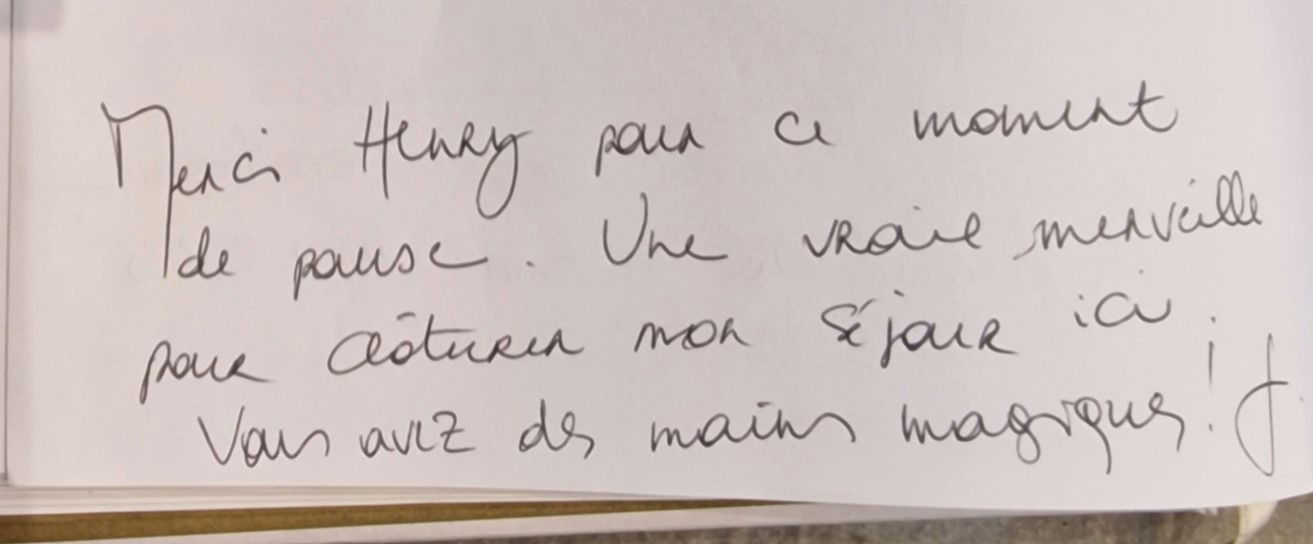 Merci Henry pour ce moment
de pause. Une vraie merveille
pour clôturer mon séjour ici.
Vous avez des mains magiques! J.